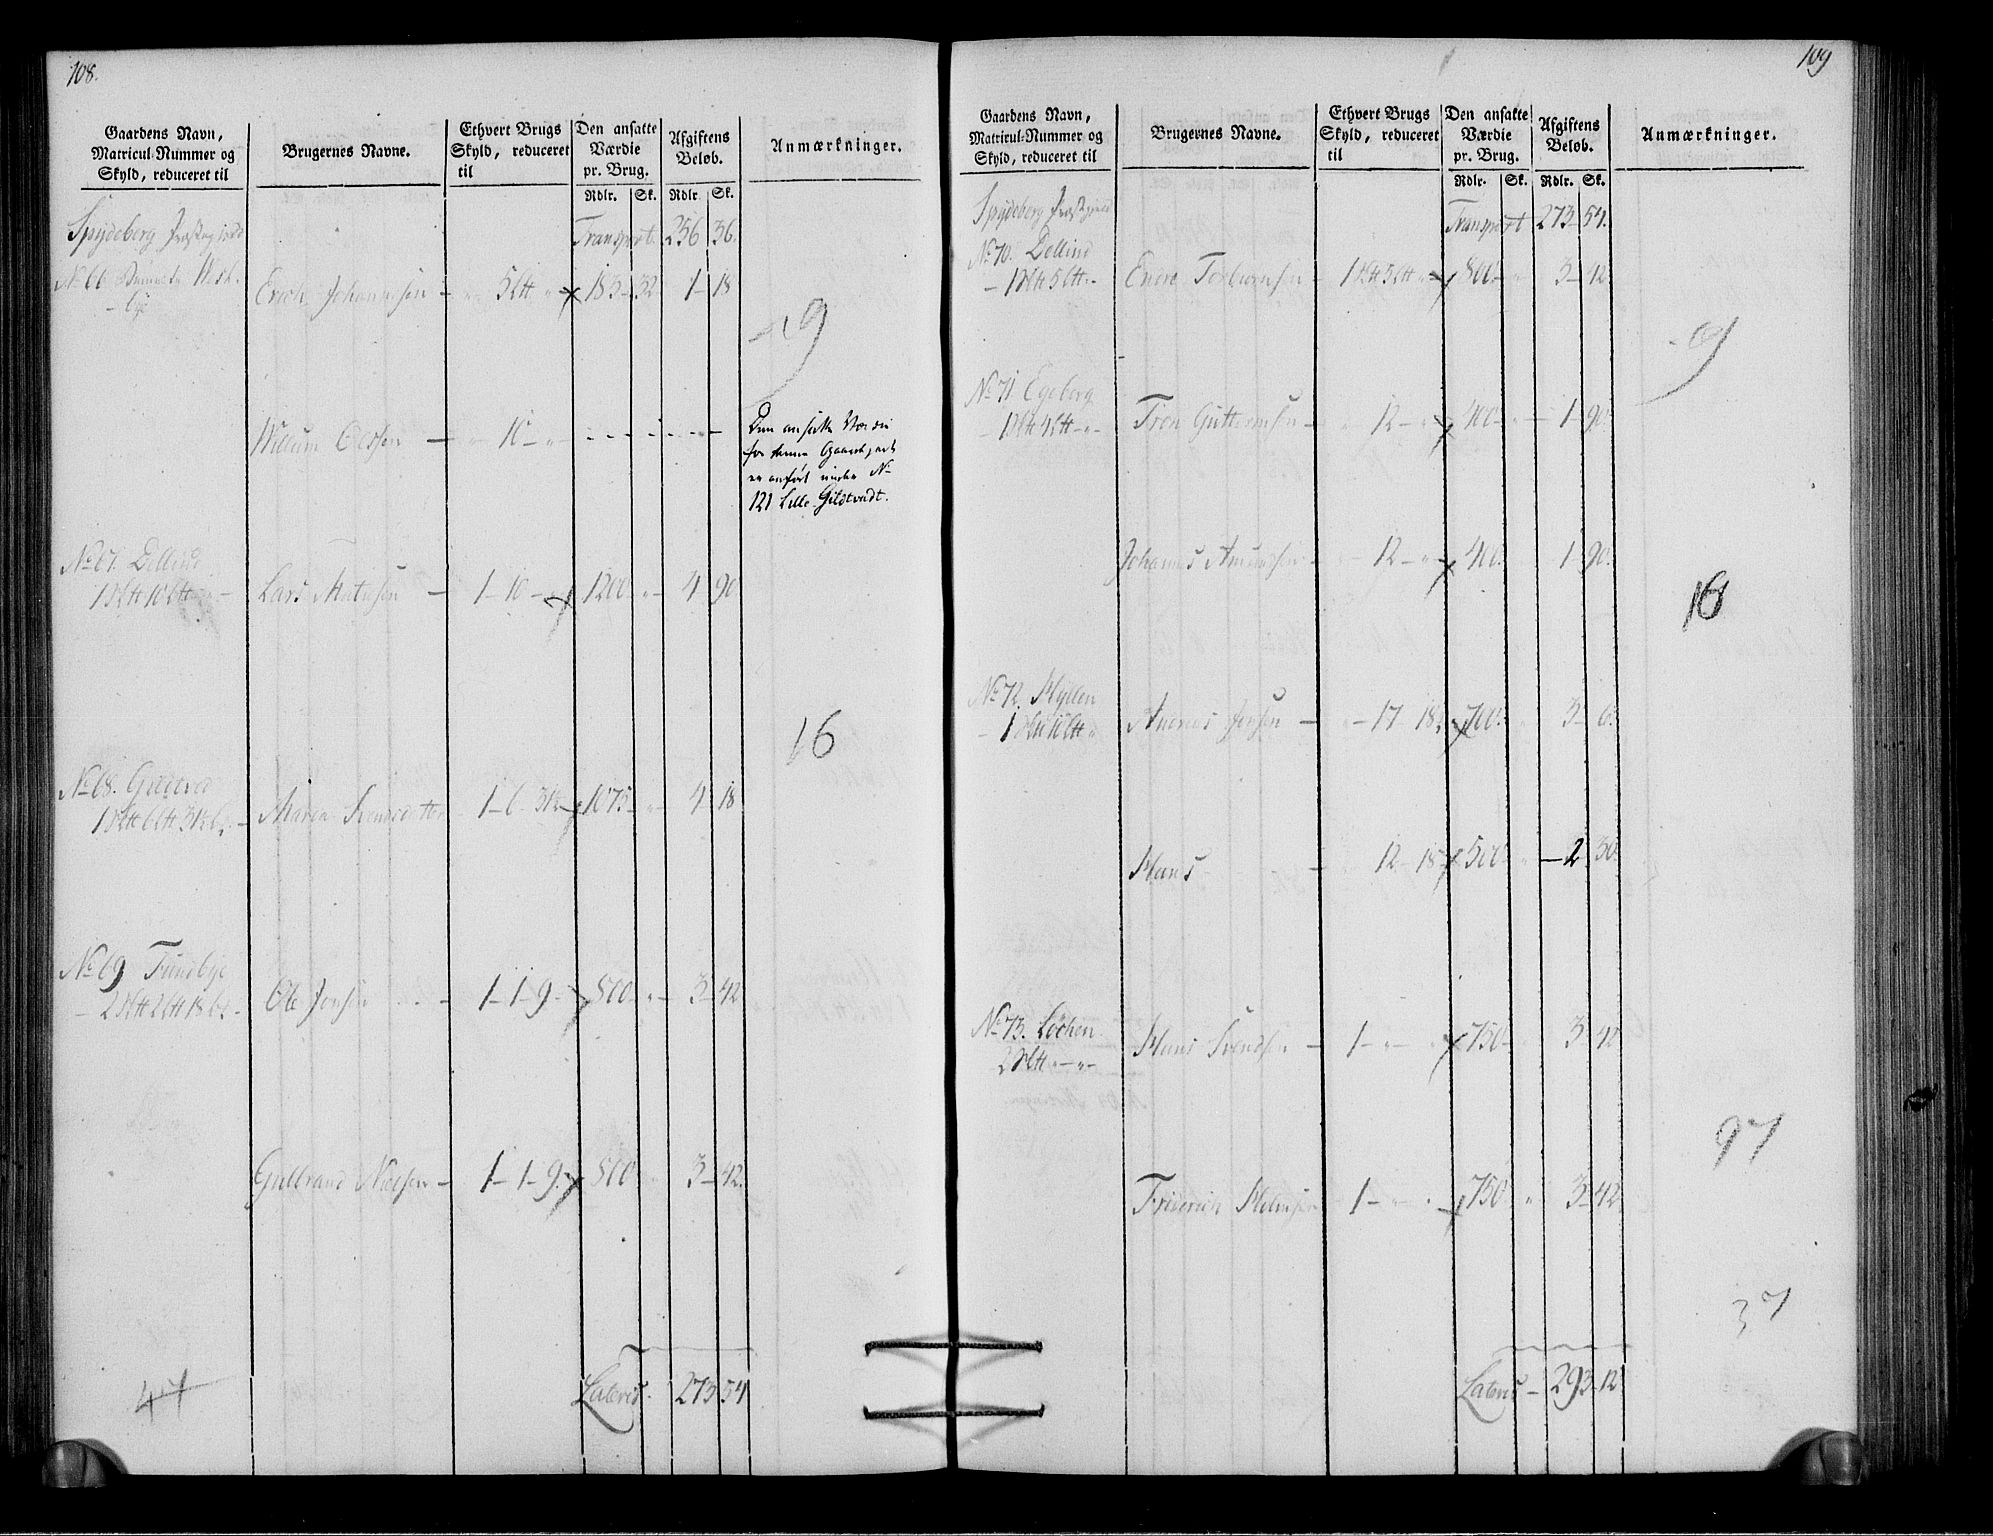 108.
Gaardens Navn,
Matricul-Nummer og
Skyld, reduceret til
Brugernes Navne.
Ethvert Brugs
Skyld, reduceret
til
Den ansatte
Værdie
pr. Brug.
Rdlr. Sk.
Afgiftens
Beløb.
Rdlr. Sk.
Anmærkninger.
Spydeberg Præstegield
Transport. 256 36.
No 66
bye
Erich Johannesen 5 183 32 1 18
9
Willum Olsen 10
Den ansatte Værdie
for denne Gaard
er anført under No
121 Lille Gildtvedt.
No 67. Dellind
Lars Matisen 1 10 1200 4 90
16
No 68.
Maren Svendsdatter 1 6 1075 4 18
No 69 Tundbye
Ole Jonsen 1 1 9. 800 3 42
Gulbrand Nielsen 1 1 9. 800 3 42.
47
Lateris 273 54
109
Gaardens Navn,
Matricul-Nummer og
Skyld, reduceret til
Brugernes Navne.
Ethvert Brugs
Skyld, reduceret
til
Den ansatte
Værdie
pr. Brug.
Rdlr. Sk.
Afgiftens
Beløb.
Rdlr. Sk.
Anmærkninger.
Spydeberg Præstegield
Transport 273 54.
No 70. Dellind
Torbiørnsen 800 3 12
9
No 71 Egeberg
Tron Guttormsen 12 400 1 90
Johannes Amundsen 12 400 1 90
16
No 72. Hyllen
Andreas Jonsen 17 18 700 3 6
Hans 12 15 500 2 30
No 73. Løchen
Hans Svendsen 1 750 3 42
97
Friderich 1 750 3 42
37
Lateris 293 12